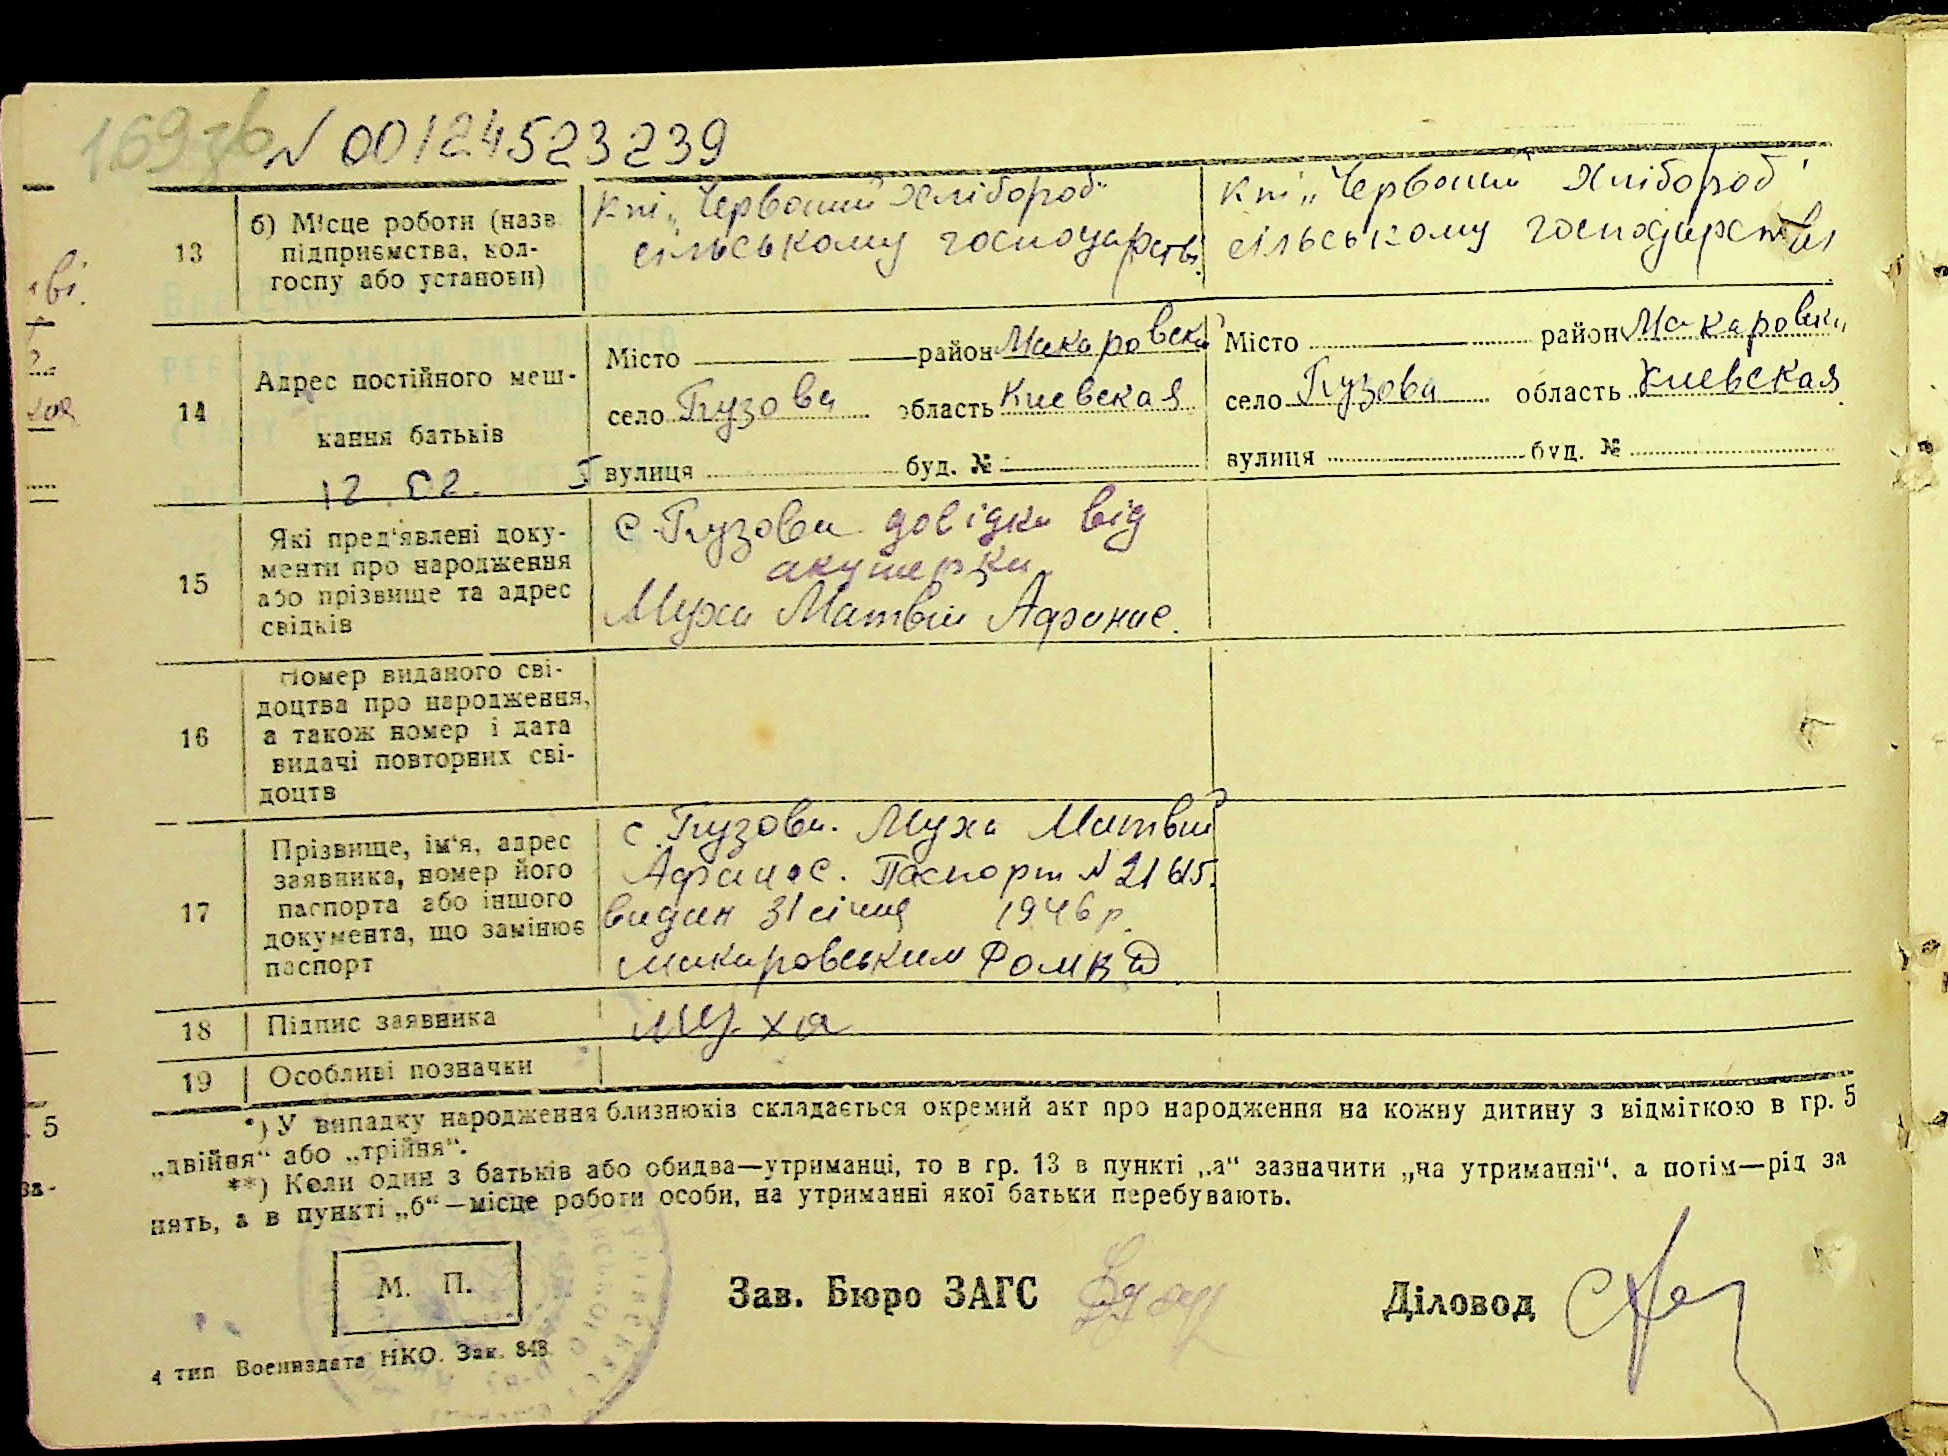 169зв N 00124523239
13
б) Місце роботи (назв.
підприємства, кол-
госпу або установи)
Кпі „Червоний Хлібороб"
сільському господарстві.
Кпі „Червоний Хлібороб"
сільському господарстві
14
Адрес постійного меш-
кання батьків
12.02.
Місто район Макаровски
село Гузова область Киевская
вулиця буд. №
Місто район Макаровски
село Гузова область Киевская
вулиця буд. №
15
Які пред'явлені доку-
менти про народження
або прізвище та адрес
свідків
с. Гузова довідка від
акушерки
Муха Матвій Афанас.
16
Номер виданого сві-
доцтва про народження,
а також номер і дата
видачі повторних сві-
доцтв
17
Прізвище, ім'я, адрес
заявника, номер його
паспорта або іншого
документа, що замінює
паспорт
с. Гузова. Муха Матвій
Афанас. Паспорт N
видан 31 січня 1946 р.
макаровським
18
Підпис заявника
Муха
19
Особливі позначки
*) У випадку народження близнюків складається окремий акт про народження на кожну дитину з відміткою в гр. 5
„двійня" або „трійня".
**) Коли один з батьків або обидва—утриманці, то в гр. 13 в пункті „а" зазначити „на утриманні", а потім—рід за
нять, а в пункті „б"—місце роботи особи, на утриманні якої батьки перебувають.
М. П.
Зав. Бюро ЗАГС
Діловод
4 тип Воениздата НКО. Зак. 848